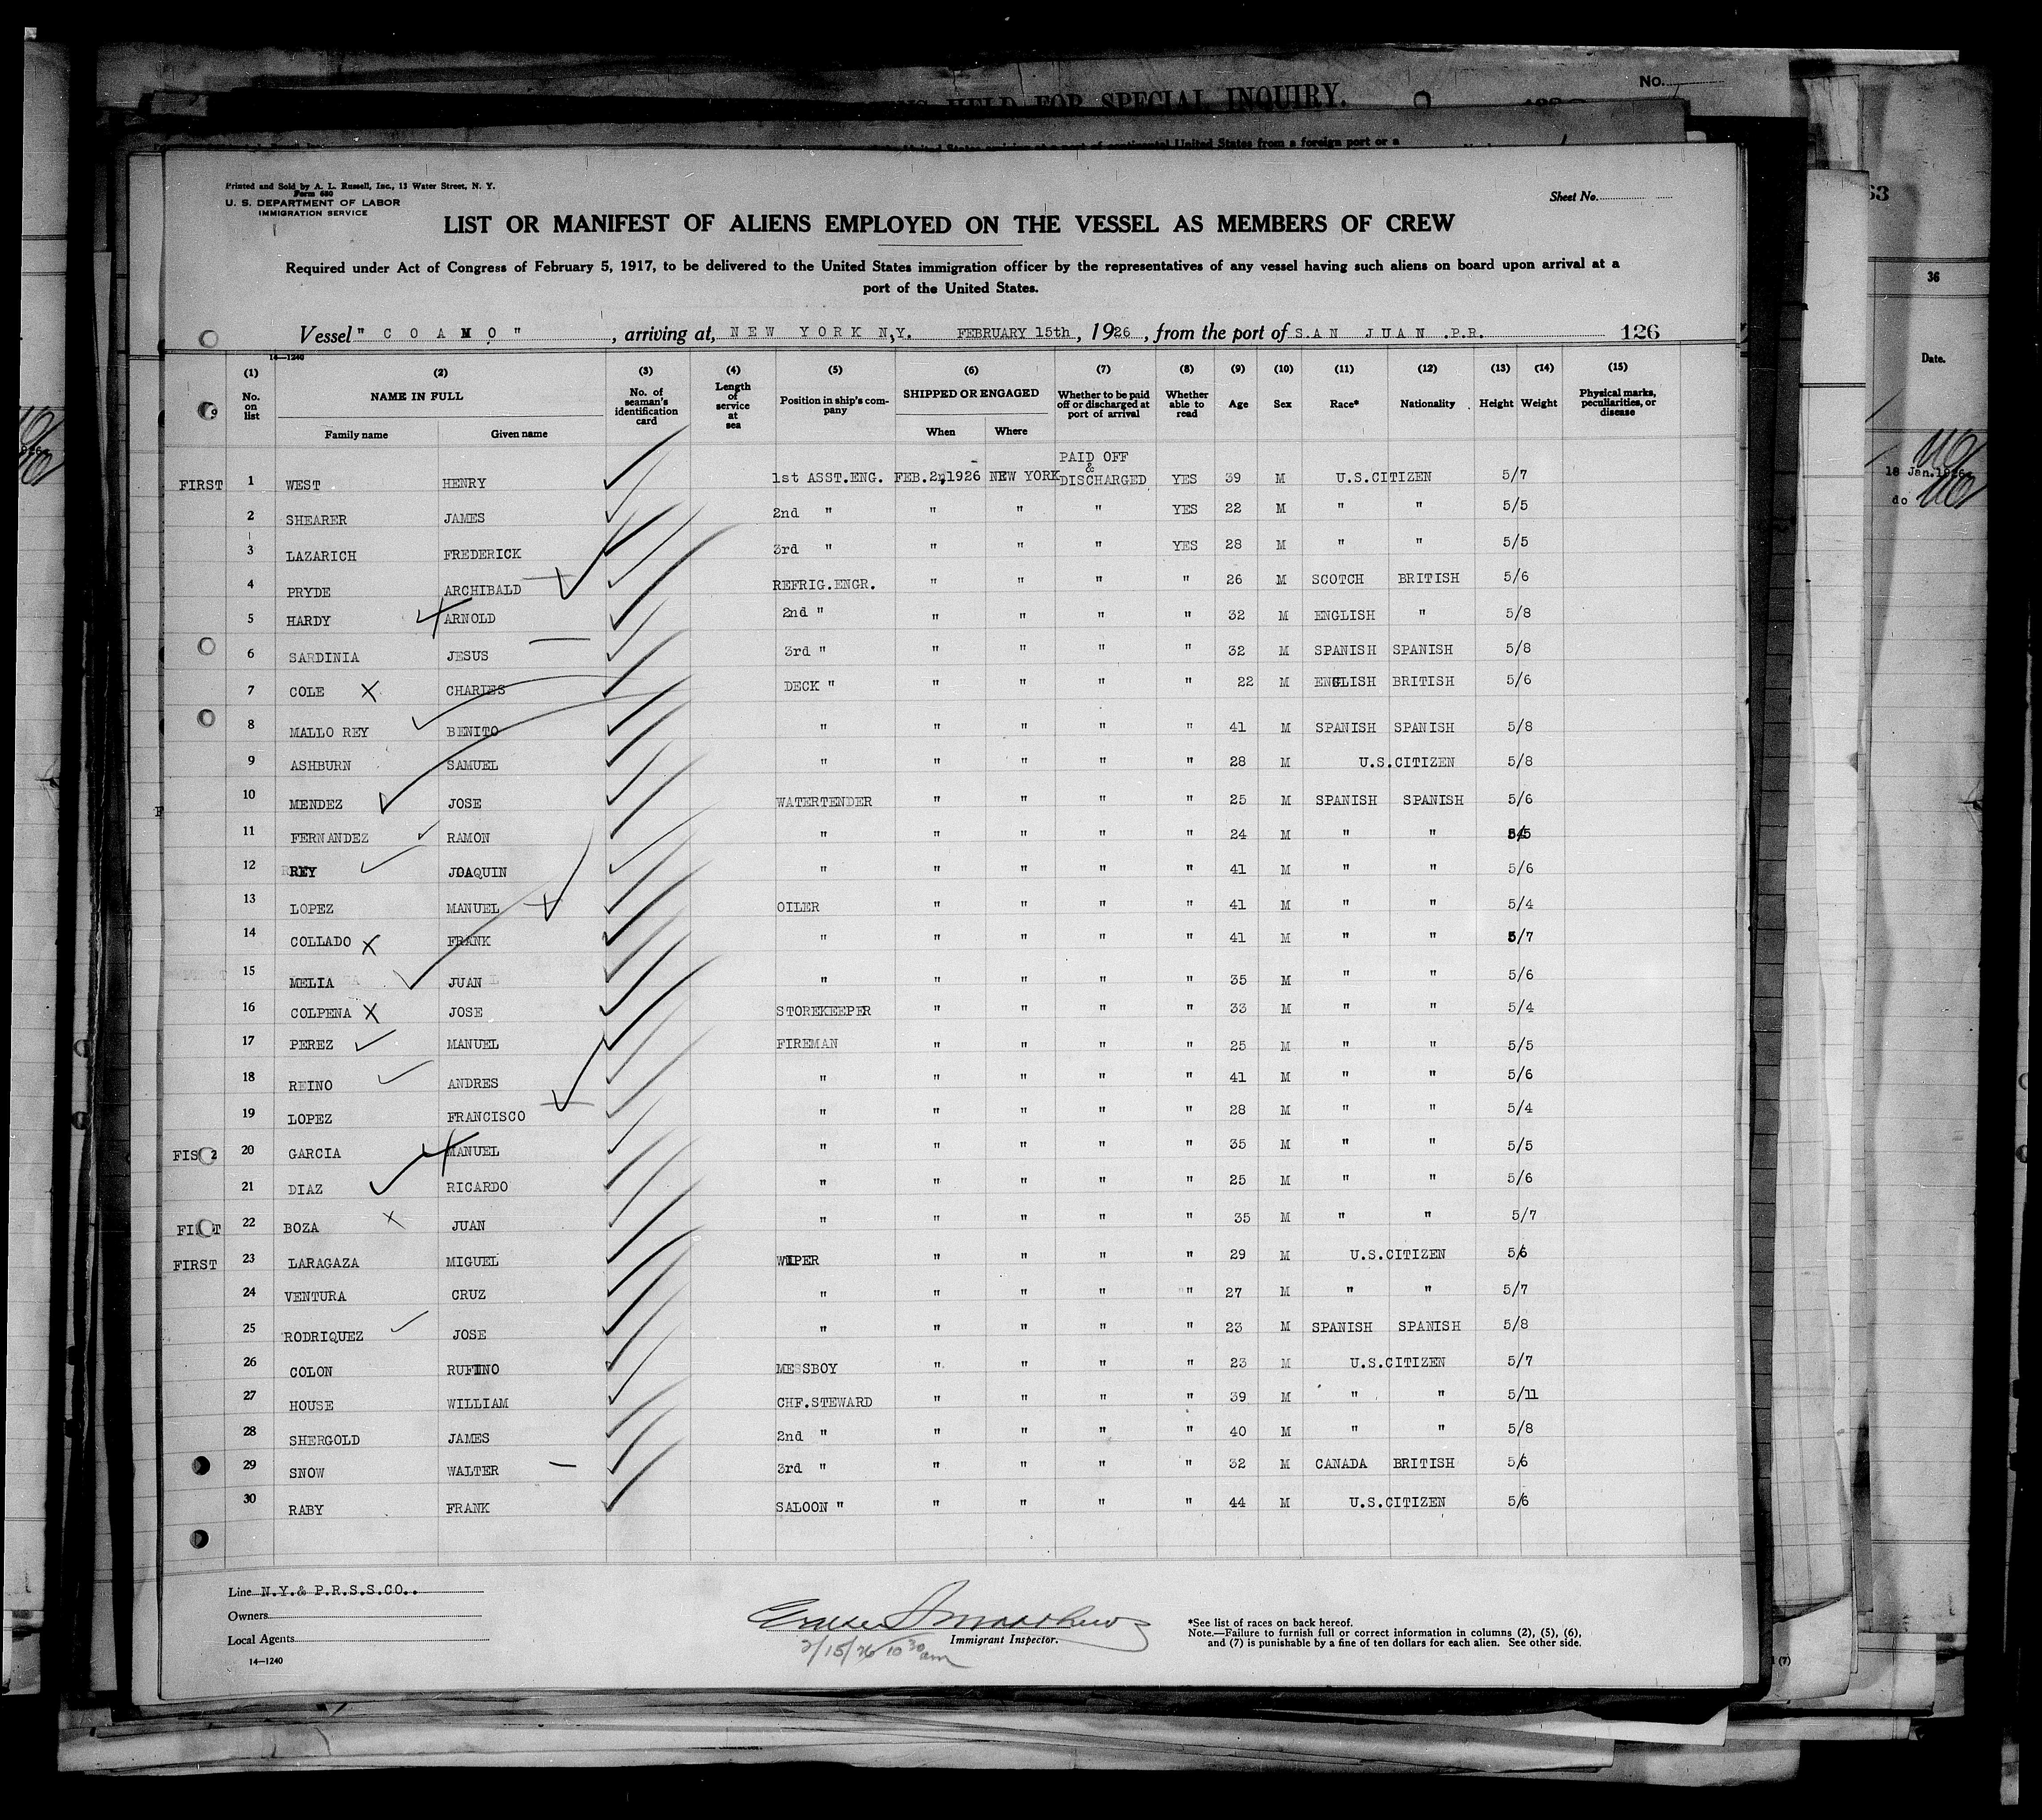 'S HELD FOR SPECIAL INQUIRY.
No.
United States from a foreign port or a
Printed and Sold by A. L. Russell, Inc., 13 Water Street, N. Y.
Form 680
U. S. DEPARTMENT OF LABOR
IMMIGRATION SERVICE
Sheet No.
LIST OR MANIFEST OF ALIENS EMPLOYED ON THE VESSEL AS MEMBERS OF CREW
Required under Act of Congress of February 5, 1917, to be delivered to the United States immigration officer by the representatives of any vessel having such aliens on board upon arrival at a
port of the United States.
Vessel " C O A M O " , arriving at, N E W Y O R K N,Y. FEBRUARY 15th, 1926, from the port of S.A N J U A N .P.R. 126
14—1240
(1) (2) (3) (4) (5) (6) (7) (8) (9) (10) (11) (12) (13) (14) (15)
No. on list NAME IN FULL Family name Given name No. of seaman's identification card Length of service at sea Position in ship's company SHIPPED OR ENGAGED When Where Whether to be paid off or discharged at port of arrival Whether able to read Age Sex Race* Nationality Height Weight Physical marks, peculiarities, or disease
PAID OFF
&
FIRST 1 WEST HENRY 1st ASST.ENG. FEB.2,1926 NEW YORK DISCHARGED YES 39 M U.S.CITIZEN 5/7
2 SHEARER JAMES 2nd " " " " YES 22 M " " 5/5
3 LAZARICH FREDERICK 3rd " " " " YES 28 M " " 5/5
4 PRYDE ARCHIBALD REFRIG.ENGR. " " " " 26 M SCOTCH BRITISH 5/6
5 HARDY ARNOLD 2nd " " " " " 32 M ENGLISH " 5/8
6 SARDINIA JESUS 3rd " " " " " 32 M SPANISH SPANISH 5/8
7 COLE X CHARLES DECK " " " " " 22 M ENGLISH BRITISH 5/6
8 MALLO REY BENITO " " " " " 41 M SPANISH SPANISH 5/8
9 ASHBURN SAMUEL " " " " " 28 M U.S.CITIZEN 5/8
10 MENDEZ JOSE WATERTENDER " " " " 25 M SPANISH SPANISH 5/6
11 FERNANDEZ RAMON " " " " " 24 M " " 5/5
12 REY JOAQUIN " " " " " 41 M " " 5/6
13 LOPEZ MANUEL OILER " " " " 41 M " " 5/4
14 COLLADO X FRANK " " " " " 41 M " " 5/7
15 MELIA JUAN " " " " " 35 M " " 5/6
16 COLPENA X JOSE STOREKEEPER " " " " 33 M " " 5/4
17 PEREZ MANUEL FIREMAN " " " " 25 M " " 5/5
18 REINO ANDRES " " " " " 41 M " " 5/6
19 LOPEZ FRANCISCO " " " " " 28 M " " 5/4
20 GARCIA MANUEL " " " " " 35 M " " 5/5
21 DIAZ RICARDO " " " " " 25 M " " 5/6
22 BOZA X JUAN " " " " " 35 M " " 5/7
FIRST 23 LARAGAZA MIGUEL WIPER " " " " 29 M U.S.CITIZEN 5/6
24 VENTURA CRUZ " " " " " 27 M " " 5/7
25 RODRIQUEZ JOSE " " " " " 23 M SPANISH SPANISH 5/8
26 COLON RUFINO MESSBOY " " " " 23 M U.S.CITIZEN 5/7
27 HOUSE WILLIAM CHF.STEWARD " " " " 39 M " " 5/11
28 SHERGOLD JAMES 2nd " " " " " 40 M " " 5/8
29 SNOW WALTER 3rd " " " " " 32 M CANADA BRITISH 5/6
30 RABY FRANK SALOON " " " " " 44 M U.S.CITIZEN 5/6
Line N.Y.& P.R.S.S.CO..
Owners
Local Agents
14—1240
Immigrant Inspector.
2/15/26 10 30 am
*See list of races on back hereof.
Note.—Failure to furnish full or correct information in columns (2), (5), (6),
and (7) is punishable by a fine of ten dollars for each alien. See other side.
63
36
Date.
18 Jan.1926
do
(7)